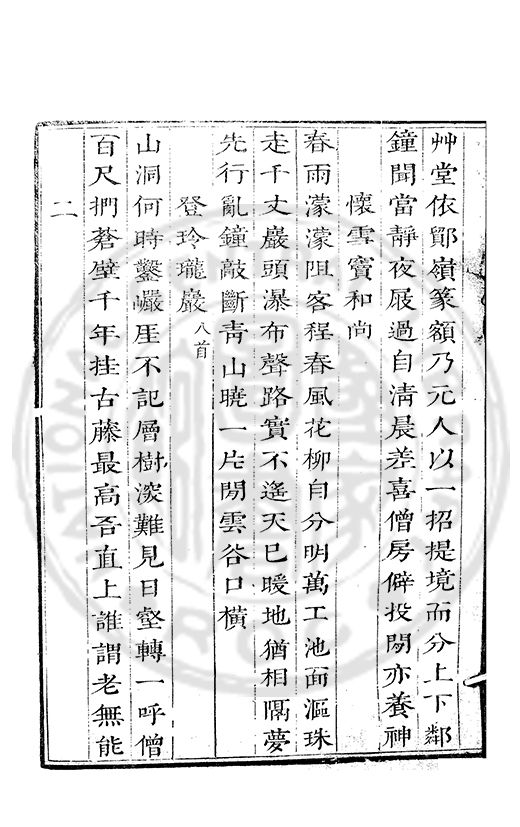 艸堂依鄮嶺篆額乃元人以一招提境而分上下鄰
鐘聞當靜夜屐過自清晨差喜僧房僻投閒亦養神
懷雪竇和尚
春雨濛濛阻客程春風花柳自分明萬工池面漚珠
走千丈巖頭瀑布聲路實不遙天巳暖地猶相隔夢
先行亂鐘敲斷靑山曉一片閒雲谷口橫
登玲瓏巖八首
山洞何時鑿巖厓不記層樹深難見日壑轉一呼僧
百尺捫蒼壁千年挂古藤最高吾直上誰謂老無能
二